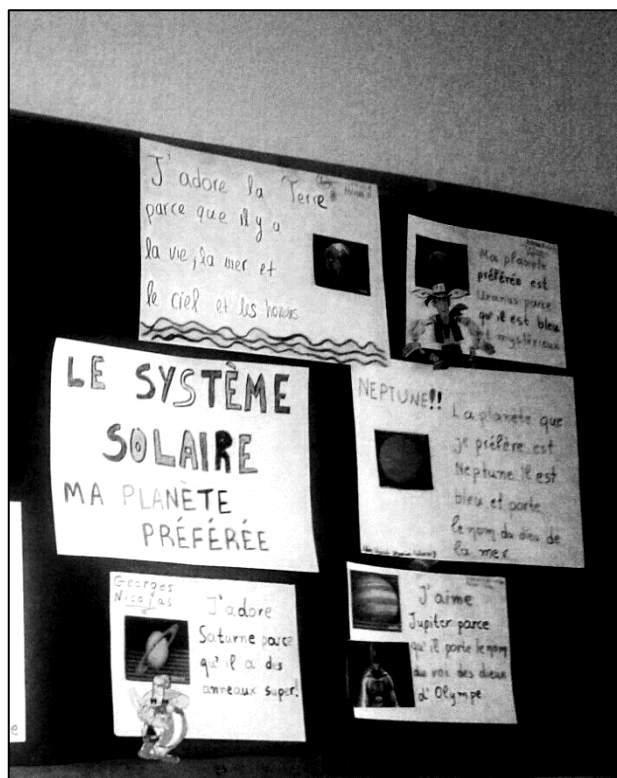 J'adore la Terre
parce que il y a
la vie, la mer et
le ciel et les
Ma planète
préférée est
Uranus parce
qu'il est bleu
et mystérieux
LE SYSTÈME
SOLAIRE
MA PLANÈTE
PRÉFÉRÉE
NEPTUNE!!
La planète que
je préfère est
Neptune Il est
bleu et porte
le nom du dieu de
la mer
Georges
Nicolas
J'adore
Saturne parce
qu'il a des
anneaux super!
J'aime
Jupiter parce
qu'il porte le nom
du roi des dieux
d'Olympe
e